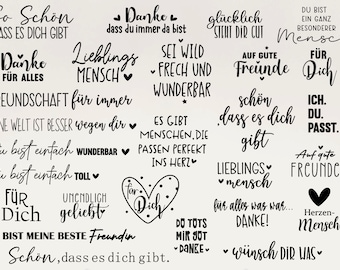 So Schön
DASS ES DICH GIBT
Danke
dass du immer da bist
glücklich
STEHT DIR GUT
DU BIST
EIN GANZ
BESONDERER
Mensch
Danke
FÜR ALLES
Lieblings
MENSCH
SEI WILD
FRECH UND
WUNDERBAR
AUF GUTE
Freunde
FÜR
Dich
FREUNDSCHAFT für immer
schön
dass es dich
gibt
ICH.
DU.
PASST.
NE WELT IST BESSER wegen dir
ES GIBT
MENSCHEN, DIE
PASSEN PERFEKT
INS HERZ
Du bist einfach WUNDERBAR
Du bist einfach TOLL
LIEBLINGS
mensch
Auf gute
FREUNDE
FÜR
Dich
UNENDLICH
geliebt
Für
Dich
für alles was war...
DANKE!
Herzen-
Mensch
BIST MEINE BESTE Freundin
DU TUTS
MIR GUT
DANKE
wünsch DIR WAS
Schön, dass es dich gibt.